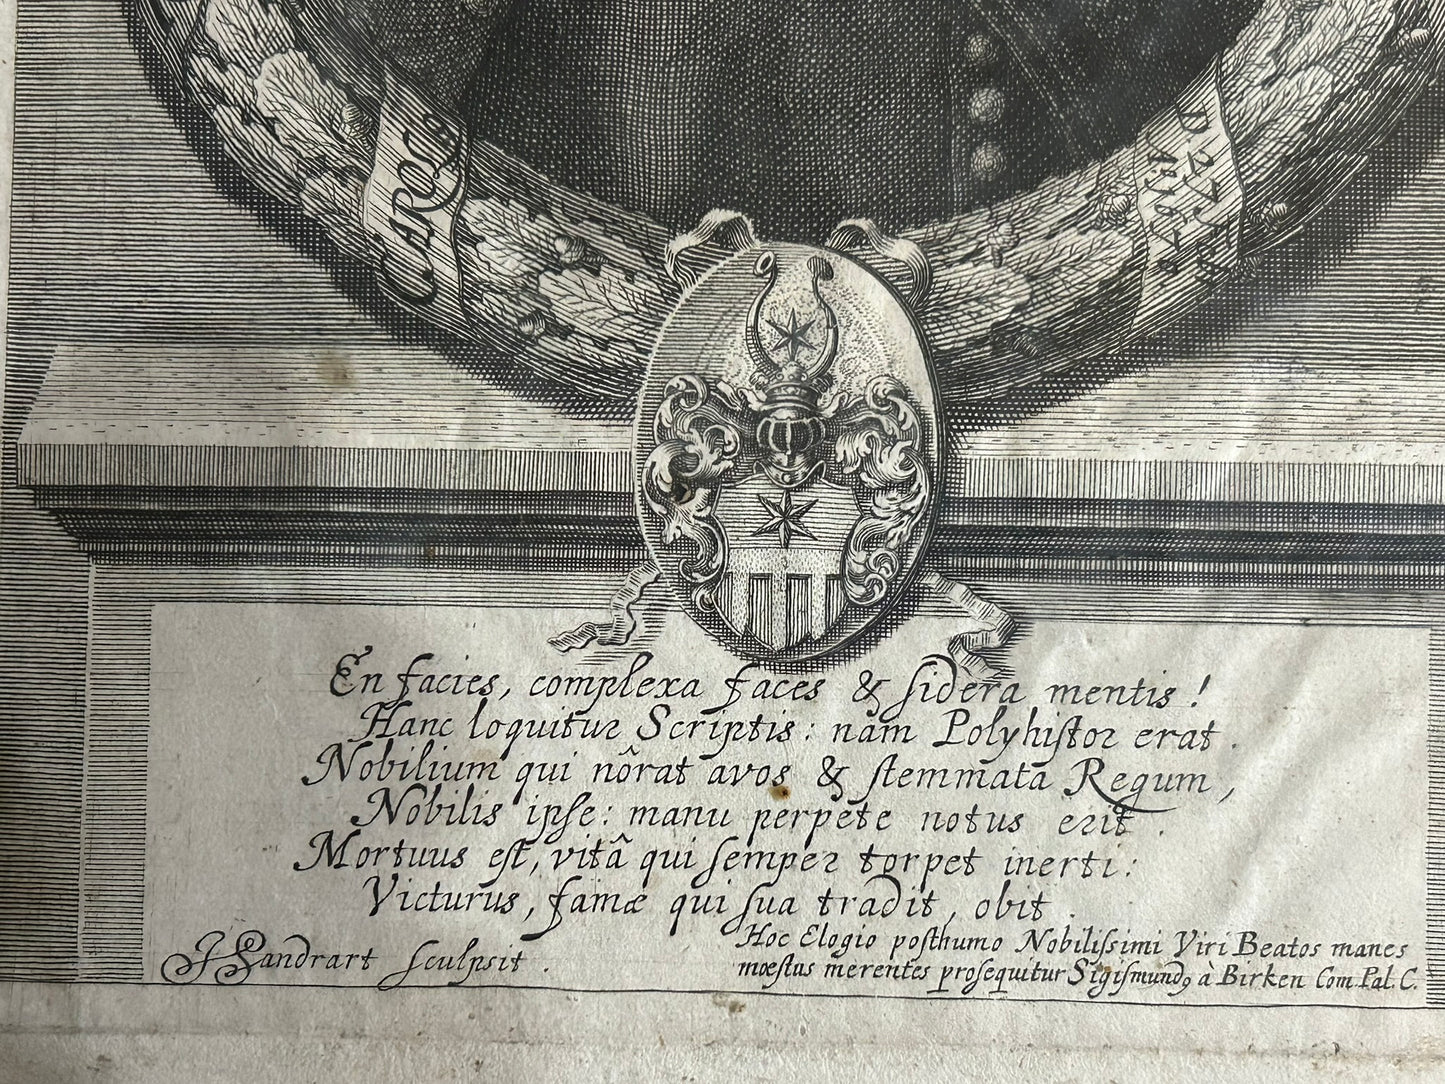 CAROLꝰ
D 27
En facies, complexa faces & sidera mentis!
Hanc loquitur Scriptis: nam Polyhistor erat.
Nobilium qui nôrat avos & stemmata Regum,
Nobilis ipse: manu perpete notus erit.
Mortuus est, vitâ qui semper torpet inerti:
Victurus, famæ qui sua tradit, obit.
JSandrart sculpsit.
Hoc Elogio posthumo Nobilissimi Viri Beatos manes
mœstus merentes prosequitur Sigismundꝰ à Birken Com. Pal. C.